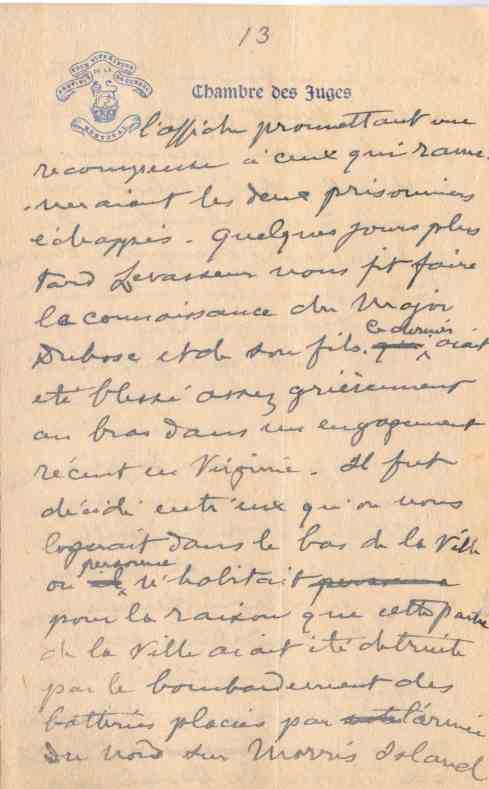 13
COUR SUPERIEURE
PROVINCE DE LA QUEBEC
MONTREAL
Chambre des Juges
l'affiche promettant une
recompense à ceux qui rame-
-neraient les deux prisonniers
échappés. Quelques jours plus
tard Levasseur nous fit faire
la connaissance du Major
Dubose et de son fils. qui ce dernier avait
été blessé assez grièvement
au bras dans un engagement
récent en Virginie. Il fut
décidé entr'eux qu'on nous
logerait dans le bas de la Ville
où il personne n'habitait personne
pour la raison que cette partie
de la Ville avait été détruite
par le bombardement des
batteries placées par l'armée
du nord sur Morris Island